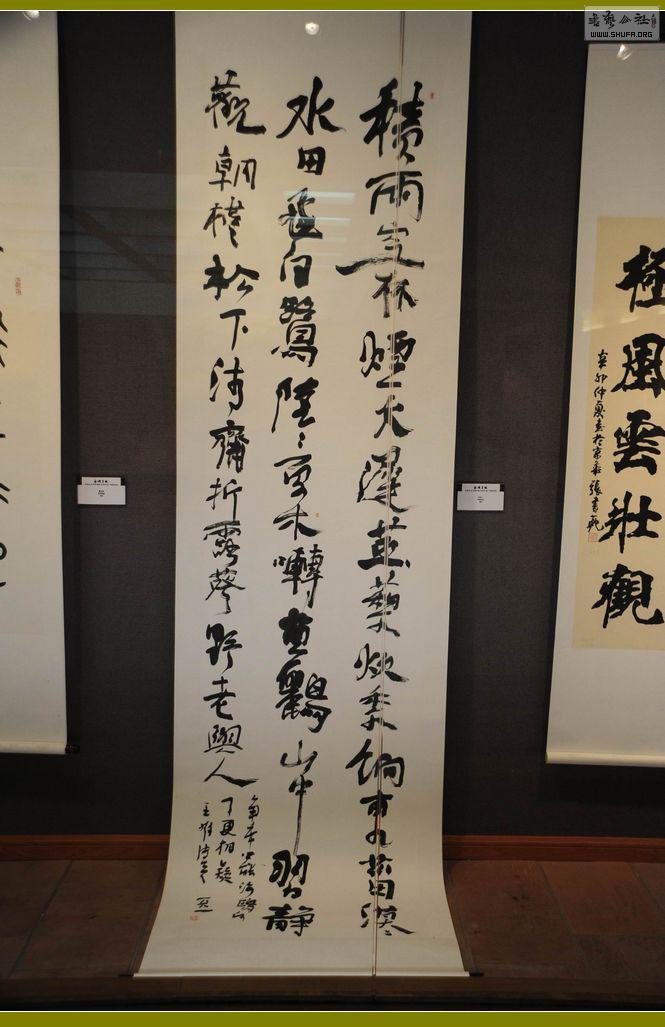 書藝公社
WWW.SHUFA.ORG
極風雲壯觀
辛卯仲夏書於京華張書範
積雨空林煙火遲蒸藜炊黍餉東菑漠〻
水田飛白鷺陰〻夏木囀黃鸝山中習靜
觀朝槿松下清齋折露葵野老與人
爭席罷海鷗何
事更相疑
王維詩